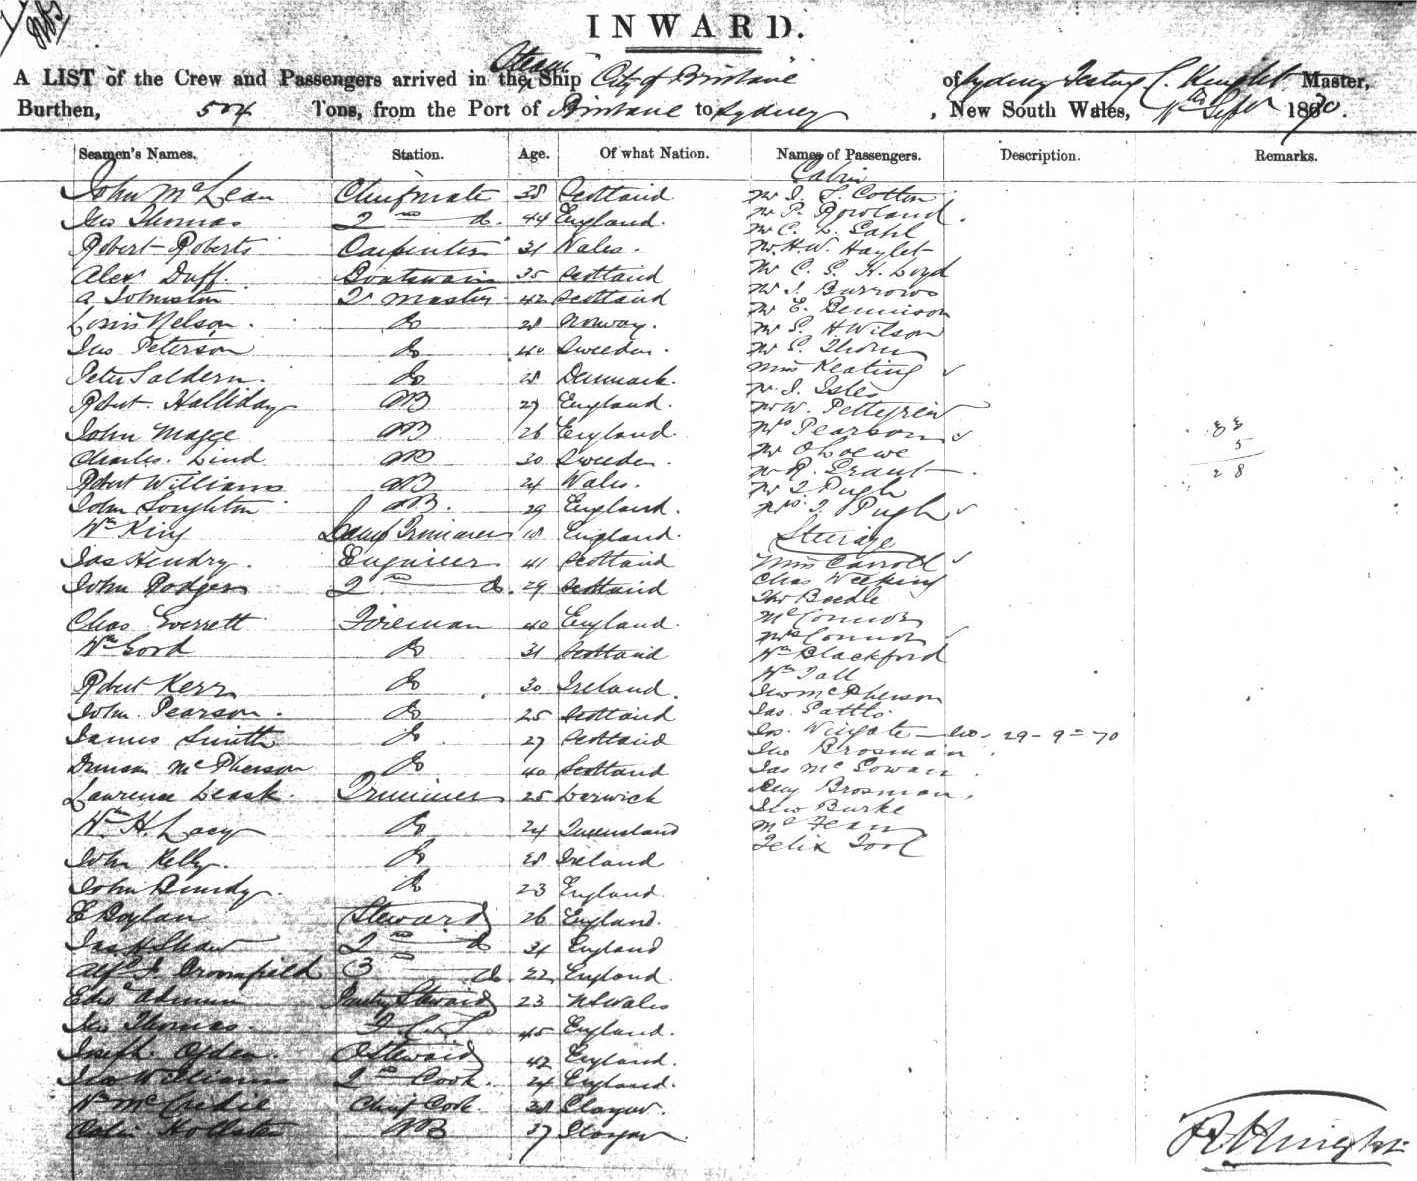 INWARD.
A LIST of the Crew and Passengers arrived in the Steam Ship City of Brisbane of Sydney Knight Master,
Burthen, 504 Tons, from the Port of Brisbane to Sydney , New South Wales, Septr 1870.
Seamen's Names. Station. Age. Of what Nation. Names of Passengers. Description. Remarks.
John McLean Chief mate 38 Scotland
Jno Thomas 2nd do. 44 England.
Robert Roberts Carpenter 31 Wales.
Alexr Duff. Boatswain 35 Scotland
A Johnston Qr master 42 Scotland
Louis Nelson. Do 28 Norway.
Jno Peterson Do 40 Sweeden.
Peter Saldern. Do 28 Denmark.
Robert. Halliday AB 27 England.
John Magee AB 26 England.
Charles. Lind AB 30 Sweeden.
Robert Williams AB 24 Wales.
John Soughton AB. 29 England.
Wm King Lamp Trimmer 18 England.
Jas Hendry. Engineer 41 Scotland
John Rodgers 2nd do. 29 Scotland
Chas Everrett Fireman 40 England.
Wm Gord Do 31 Scotland
Robert Kerr Do 30 Ireland.
John. Pearson. Do 25 Scotland
James Smith Do 27 Scotland
Duncan McPherson Do 40 Scotland
Lawrence Leask. Trimmer 25 Lerwick
Wm H. Lacy Do 24 Queensland
John Kelly. Do 28 Ireland
John Bundy. Do 23 England.
E Boylan Steward 26 England.
Jas H Shaw 2nd do 31 England
Alfd J. Broomfield 3 do. 22 England.
Edwd Pantry Steward 23 N S Wales
Jno Thomas. 45 England.
Joseph. Ogden. Steward 42 England.
Jno Williams 2nd Cook. 24 England.
Wm McCredie Chief Cook. 38 Glasgow.
AB 27 Glasgow.
Cabin
Mr J. F. Cotton
Mr P. Rowland.
Mr C. L. Sahl
Mr H. W. Haylet
Mr C. G. H. Loyd
Mr J. Burrows
Mr E. Bennison
Mr S. H. Wilson
Mr S. Thorn
Miss Keating
Mr. J. Isles
Mr W. Pettygrew
Mrs Pearson
Mr O Loewe
Mr R. Grant
Mr T. Pugh
Mrs. T. Pugh
Steerage
Miss Carroll
Chas Weeking
Thos Beedle
McConnor
Mrs Connor
Wm Blackford
Wm Tall
Jno McPherson
Jas. Pattle
Jos. Wingate - do - 29-9-70
Jno Brosman
Jas McGowan
Brosman
Jno Burke
McFean
Felix Tool
33
5
28
R. Knight